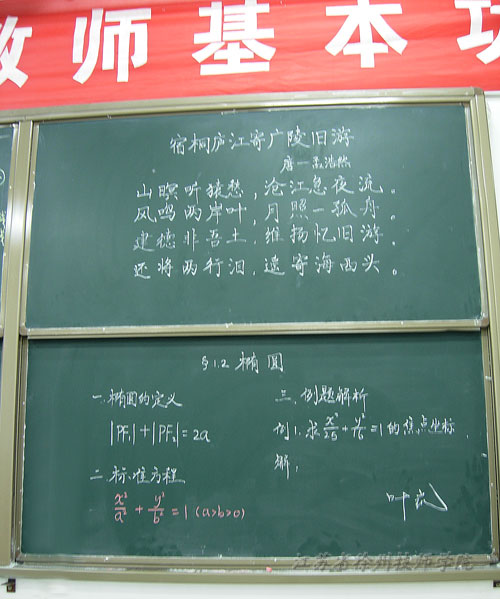 教师基本功
宿桐庐江寄广陵旧游
唐一孟浩然
山暝听猿愁，沧江急夜流。
风鸣两岸叶，月照一孤舟。
建德非吾土，维扬忆旧游。
还将两行泪，遥寄海西头。
§1.2 椭圆
一.椭圆的定义
|PF₁|+|PF₂|=2a
二.标准方程
x²/a² + y²/b² = 1 (a>b>0)
三.例题解析
例1.求x²/25+y²/16=1的焦点坐标.
解：
江苏省徐州技师学院